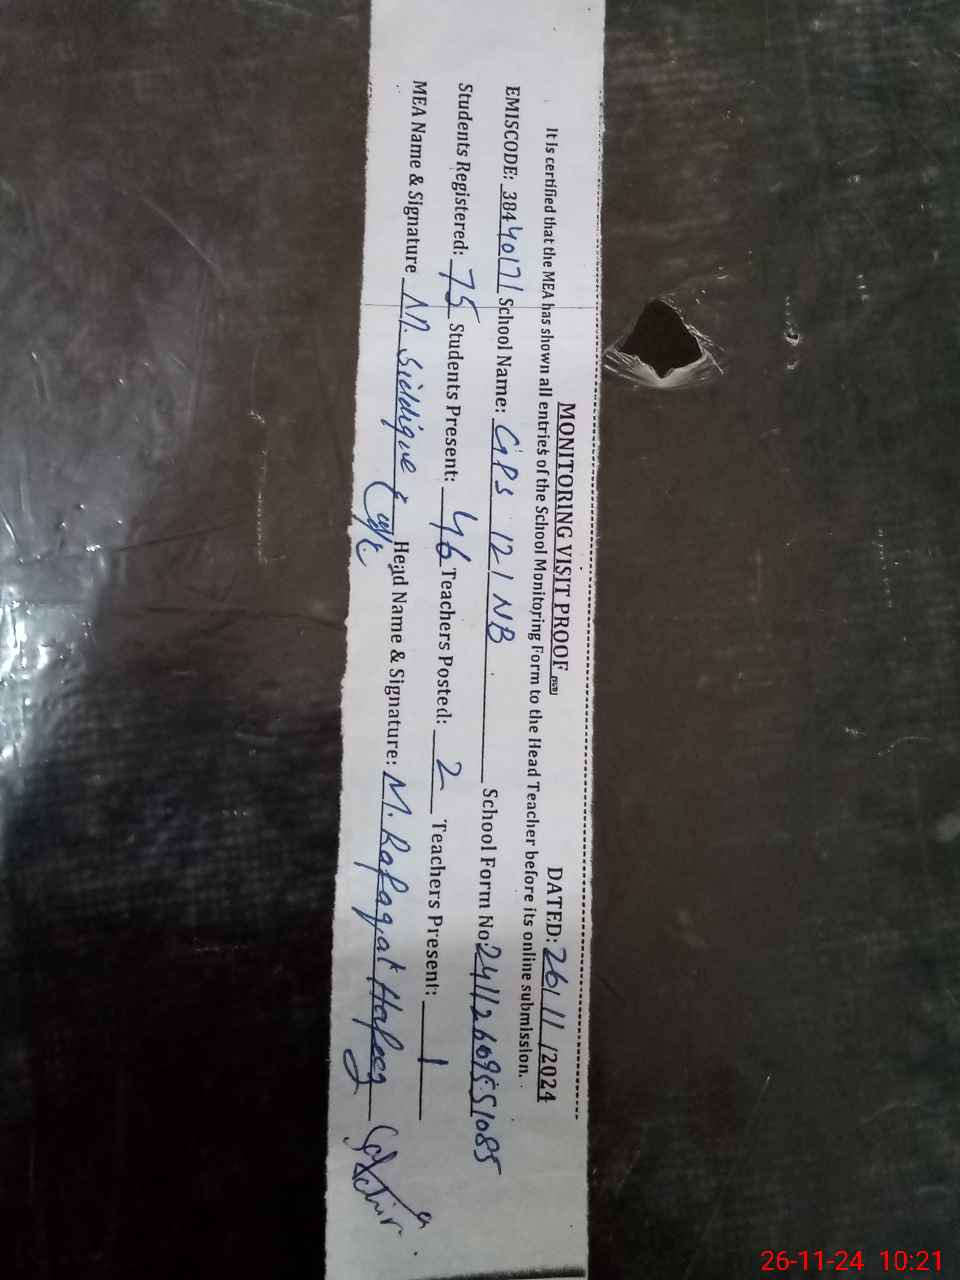 MONITORING VISIT PROOF
DATED: 26/11/2024
It is certified that the MEA has shown all entries of the School Monitoring Form to the Head Teacher before its online submission.
EMISCODE: 38440171 School Name: GPS 121 NB School Form No: 24112609551085
Students Registered: 75 Students Present: 46 Teachers Posted: 2 Teachers Present: 1
MEA Name & Signature M. Siddique Head Name & Signature: M. Rafaqat Hafeez
26-11-24 10:21